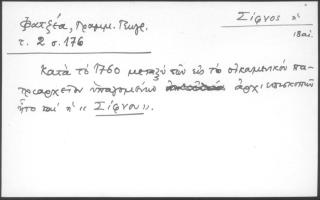 Φατζέα, Γραμμ. Γεωγρ.
τ. 2 σ. 176
Σίφνος
18 αἰ.
Κατὰ τὸ 1760 μεταξὺ τῶν εἰς τὸ οἰκουμενικόν πα-
τριαρχεῖον ὑπαγομένων ἀρχιεπισκοπῶν
ἦτο καὶ ἡ "Σίφνου".